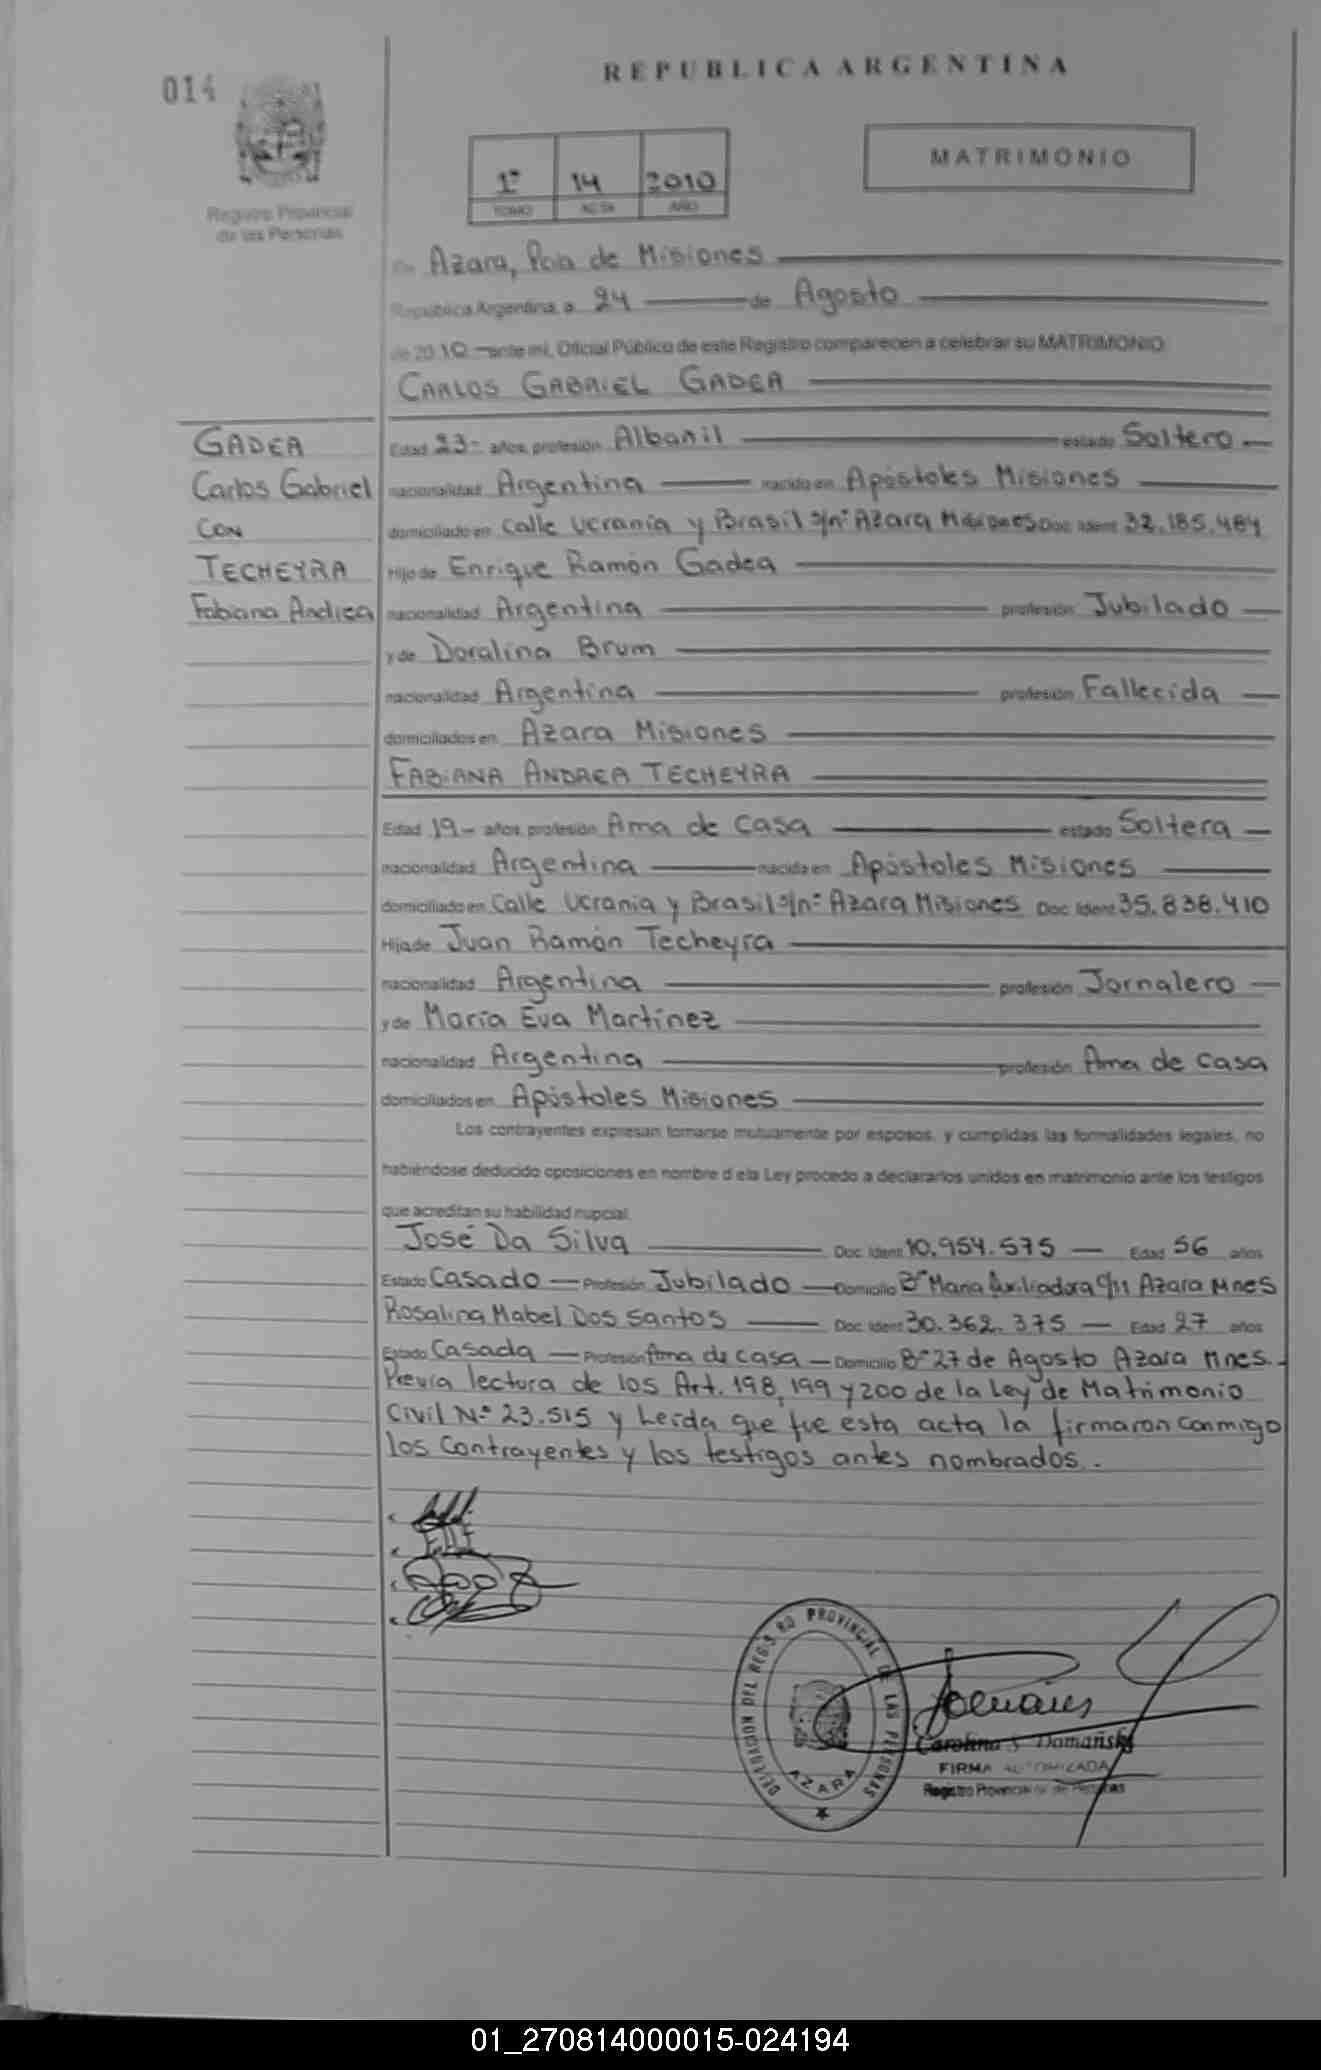 REPUBLICA ARGENTINA
014
Registro Provincial
de las Personas
1º 14 2010
TOMO ACTA AÑO
MATRIMONIO
En Azara, Pcia de Misiones
República Argentina, a 24 de Agosto
de 2010 ante mí, Oficial Público de este Registro comparecen a celebrar su MATRIMONIO
CARLOS GABRIEL GADEA
GADEA
Carlos Gabriel
CON
TECHEYRA
Fabiana Andrea
Edad 23- años, profesión Albañil estado Soltero
nacionalidad Argentina nacido en Apóstoles Misiones
domiciliado en Calle Ucrania y Brasil s/nº Azara Misiones Doc. Ident. 32.185.484
Hijo de Enrique Ramón Gadea
nacionalidad Argentina profesión Jubilado
y de Doralina Brum
nacionalidad Argentina profesión Fallecida
domiciliados en Azara Misiones
FABIANA ANDREA TECHEYRA
Edad 19- años, profesión Ama de Casa estado Soltera
nacionalidad Argentina nacida en Apóstoles Misiones
domiciliado en Calle Ucrania y Brasil s/nº Azara Misiones Doc. Ident. 35.838.410
Hija de Juan Ramón Techeyra
nacionalidad Argentina profesión Jornalero
y de María Eva Martínez
nacionalidad Argentina profesión Ama de casa
domiciliados en Apóstoles Misiones
Los contrayentes expresan tomarse mutuamente por esposos, y cumplidas las formalidades legales, no
habiéndose deducido oposiciones en nombre d ela Ley procedo a declararlos unidos en matrimonio ante los testigos
que acreditan su habilidad nupcial.
José Da Silva Doc. Ident. 10.954.575 Edad 56 años
Estado Casado Profesión Jubilado Domicilio Bº María Auxiliadora c/11 Azara Mnes
Rosalina Mabel Dos Santos Doc. Ident. 30.362.375 Edad 27 años
Estado Casada Profesión Ama de casa Domicilio Bº 27 de Agosto Azara Mnes.
Previa lectura de los Art. 198, 199 y 200 de la Ley de Matrimonio
Civil Nº 23.515 y Leída que fue esta acta la firmaron conmigo
los Contrayentes y los testigos antes nombrados.
DELEGACION DEL REGISTRO PROVINCIAL DE LAS PERSONAS
AZARA
Carolina S. Domański
FIRMA AUTORIZADA
Registro Provincial de Personas
01_270814000015-024194